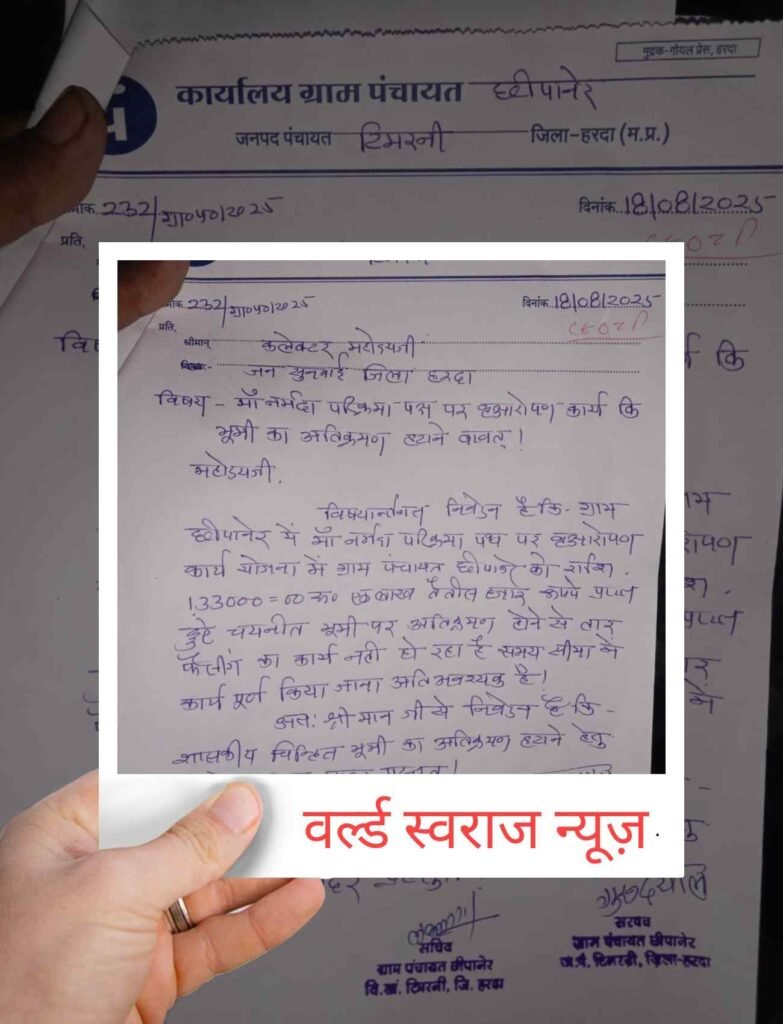 मुद्रक-गोयल प्रेस, हरदा
कार्यालय ग्राम पंचायत छीपानेर
जनपद पंचायत टिमरनी जिला-हरदा (म.प्र.)
232/ग्रा०पं०/2025 दिनांक 18/08/2025
प्रति,
232/ग्रा०पं०/2025 दिनांक 18/08/2025
प्रति,
श्रीमान् कलेक्टर महोदयजी
जन सुनवाई जिला हरदा
विषय - माँ नर्मदा परिक्रमा पथ पर वृक्षारोपण कार्य कि
भूमी का अतिक्रमण हटाने बाबत्।
महोदयजी,
विषयान्तर्गत निवेदन है कि ग्राम
छीपानेर में माँ नर्मदा परिक्रमा पथ पर वृक्षारोपण
कार्य योजना में ग्राम पंचायत छीपानेर को राशि
133000=00 रू० एक लाख तैतीस हजार रूपये प्राप्त
हुई चयनीत भूमी पर अतिक्रमण होने से तार
फैंसींग का कार्य नही हो रहा है समय सीमा में
कार्य पूर्ण किया जाना अतिआवश्यक है।
अतः श्री मान जी से निवेदन है कि -
शासकीय चिन्हित भूमी का अतिक्रमण हटाने हेतु
वर्ल्ड स्वराज न्यूज़
सचिव
ग्राम पंचायत छीपानेर
वि.खं. टिमरनी, जि. हरदा
सरपंच
ग्राम पंचायत छीपानेर
ज.पं. टिमरनी, जिला-हरदा